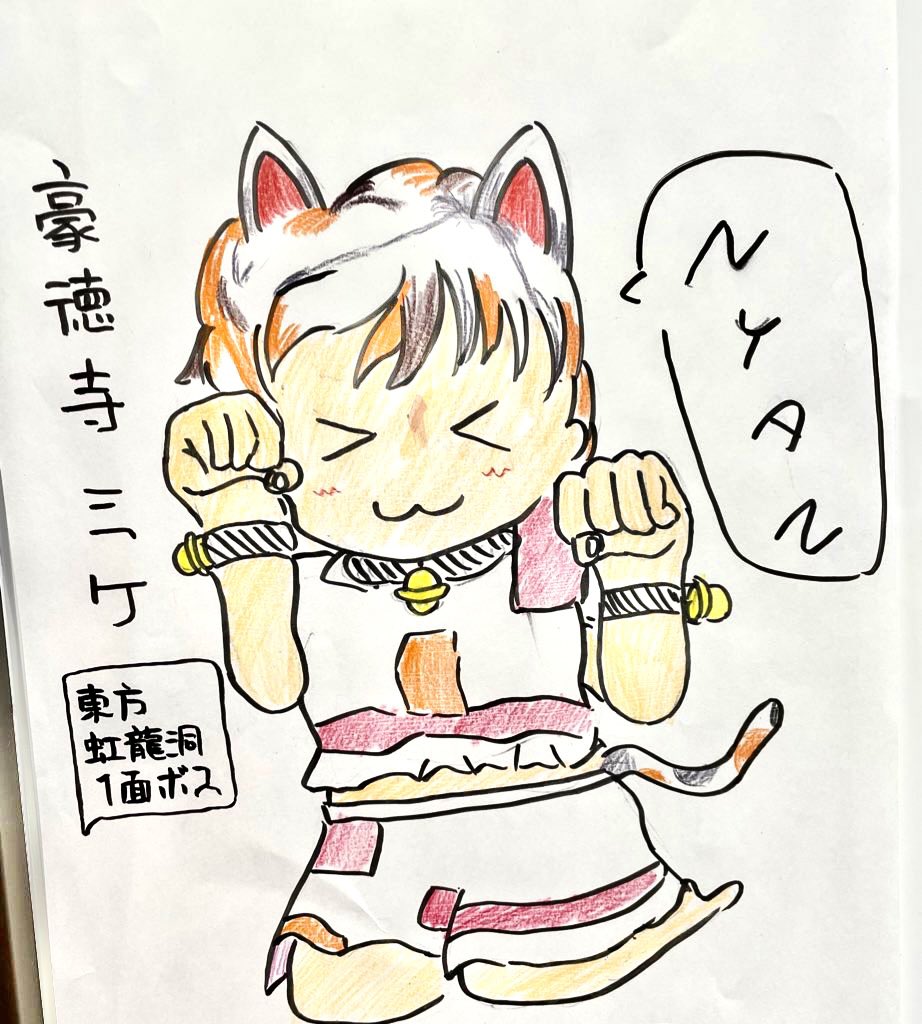 豪徳寺ミケ
東方
虹龍洞
1面ボス
NYAN